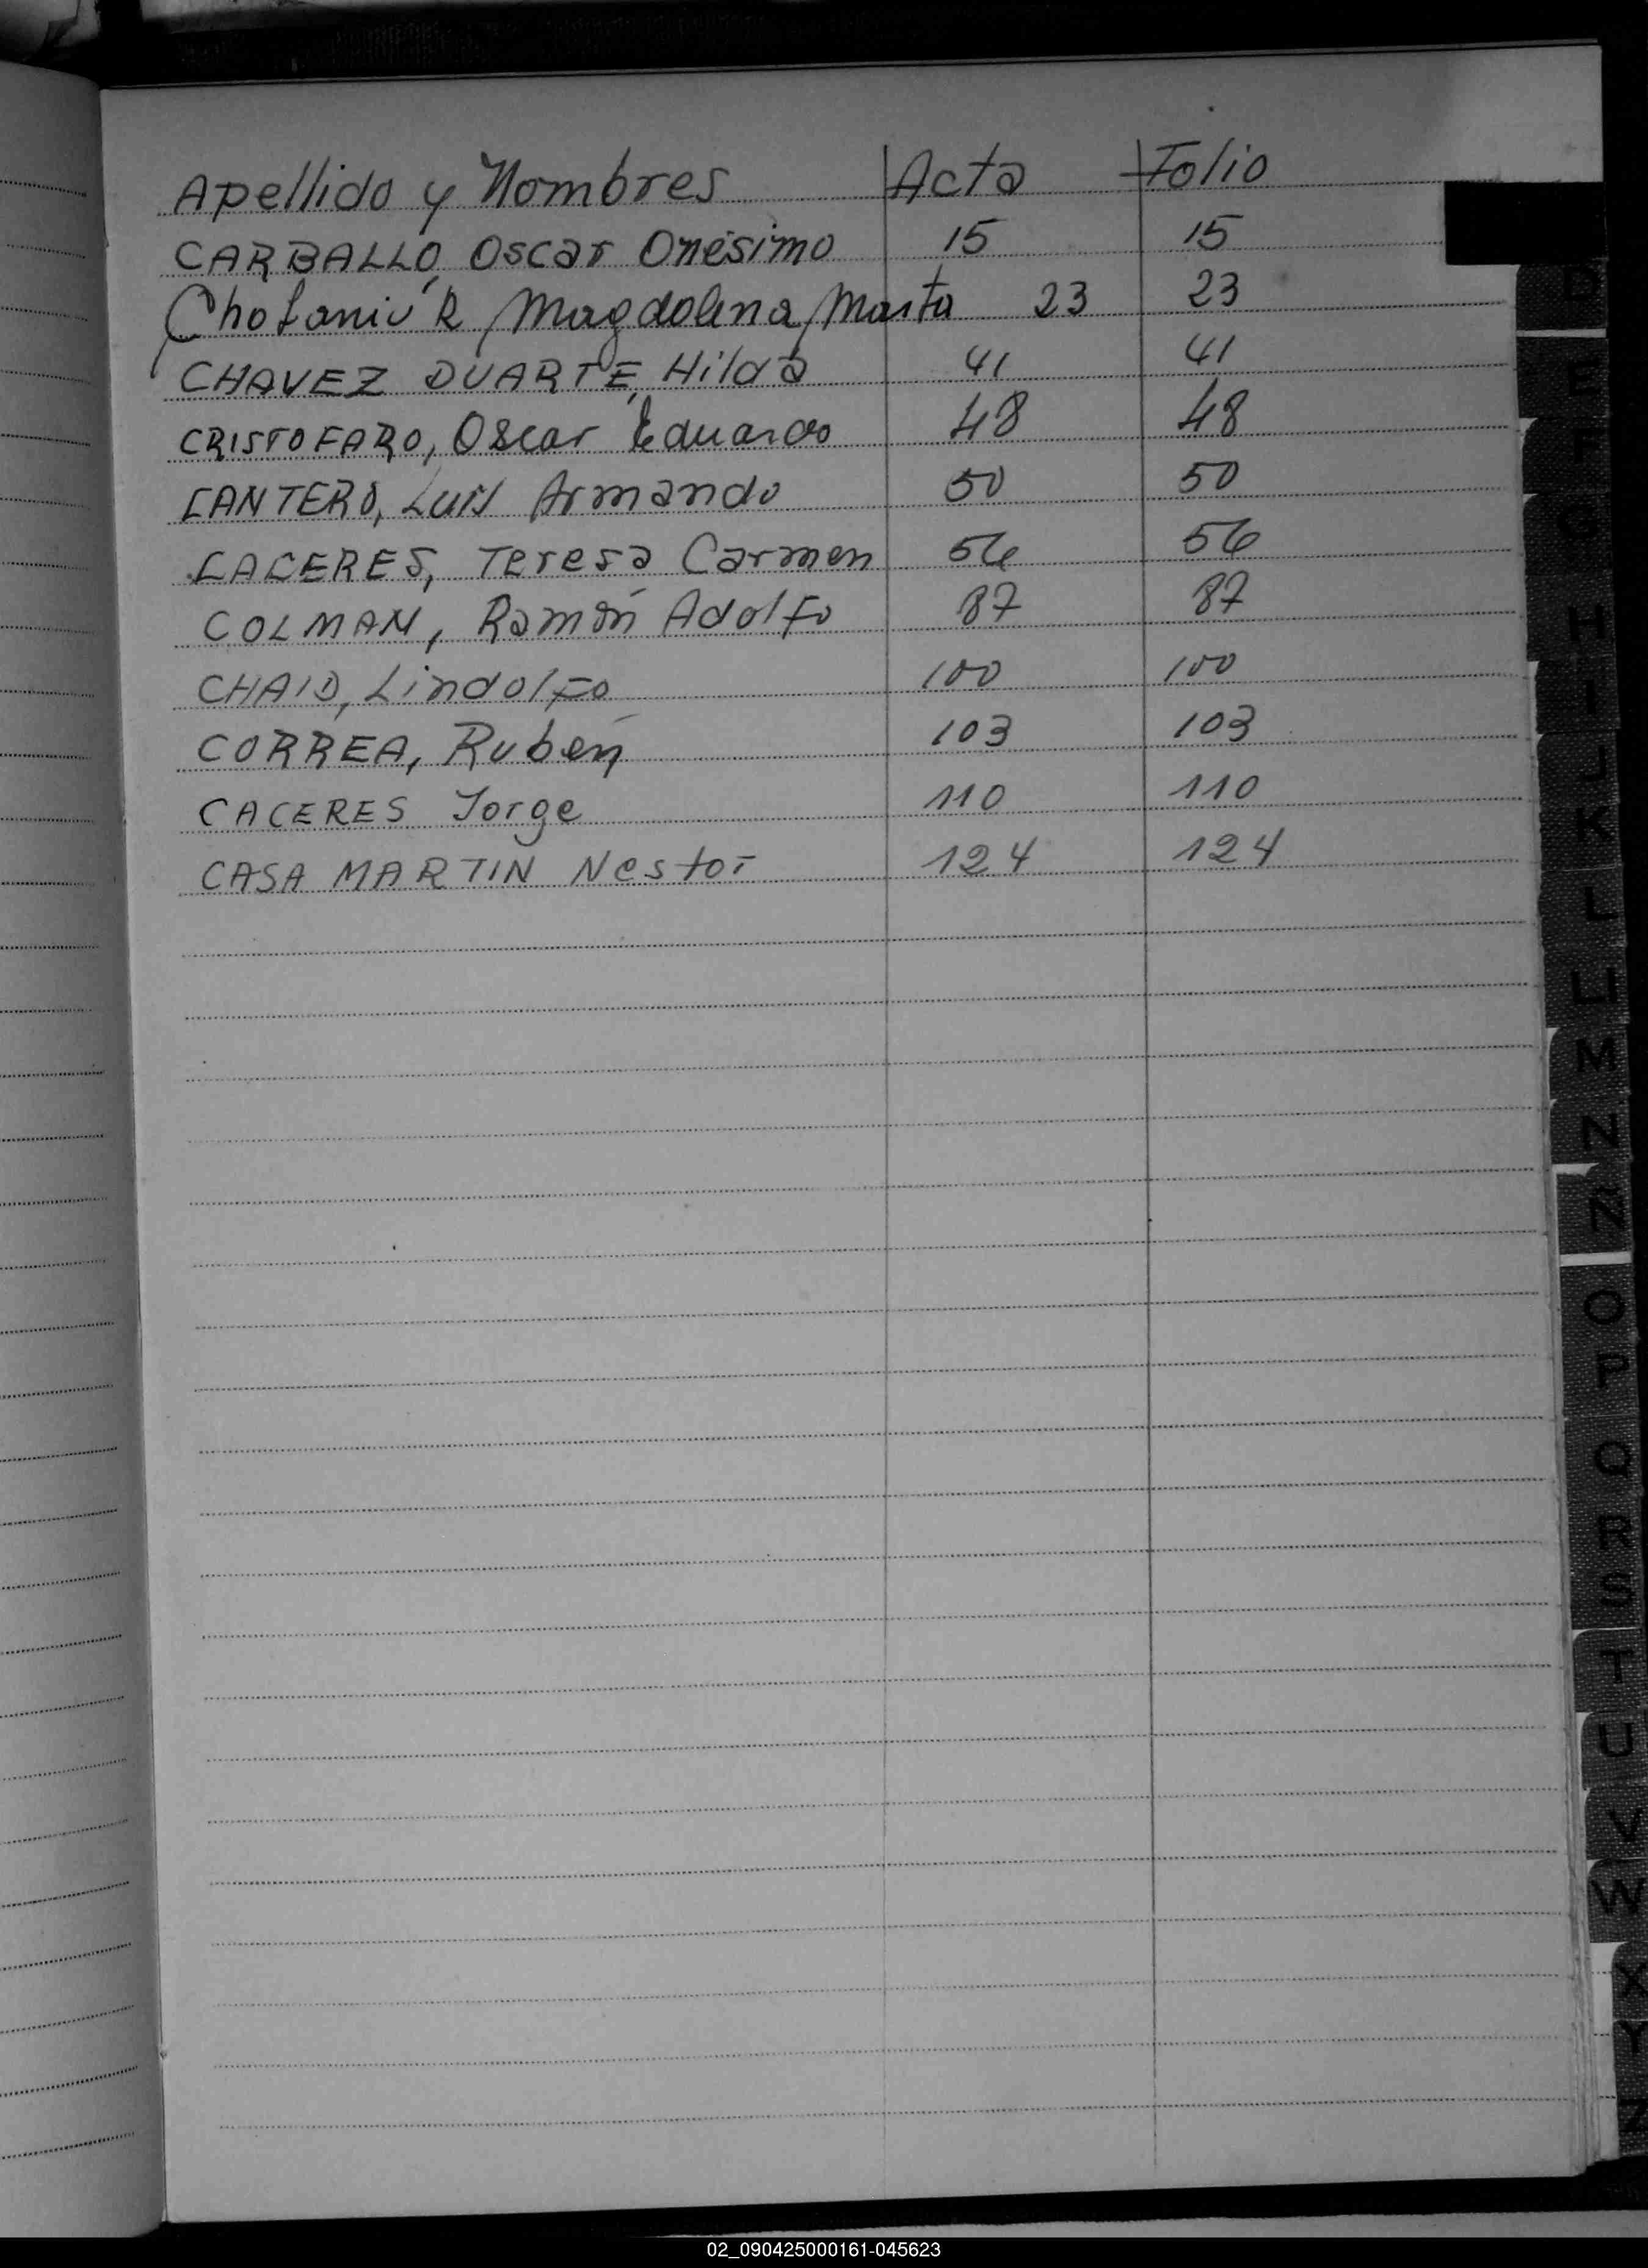 Apellido y Nombres Acta Folio
CARBALLO, Oscar Onésimo 15 15
Magdalena Marta 23 23
CHAVEZ DUARTE, Hilda 41 41
CRISTOFARO, Oscar Eduardo 48 48
CANTERO, Luis Armando 50 50
CACERES, Teresa Carmen 56 56
COLMAN, Ramón Adolfo 87 87
CHAID, Lindolfo 100 100
CORREA, Rubén 103 103
CACERES Jorge 110 110
CASA MARTIN Nestor 124 124
D
E
F
G
H
I
J
K
L
Ll
M
N
Ñ
O
P
Q
R
S
T
U
V
W
X
Y
Z
02_090425000161-045623